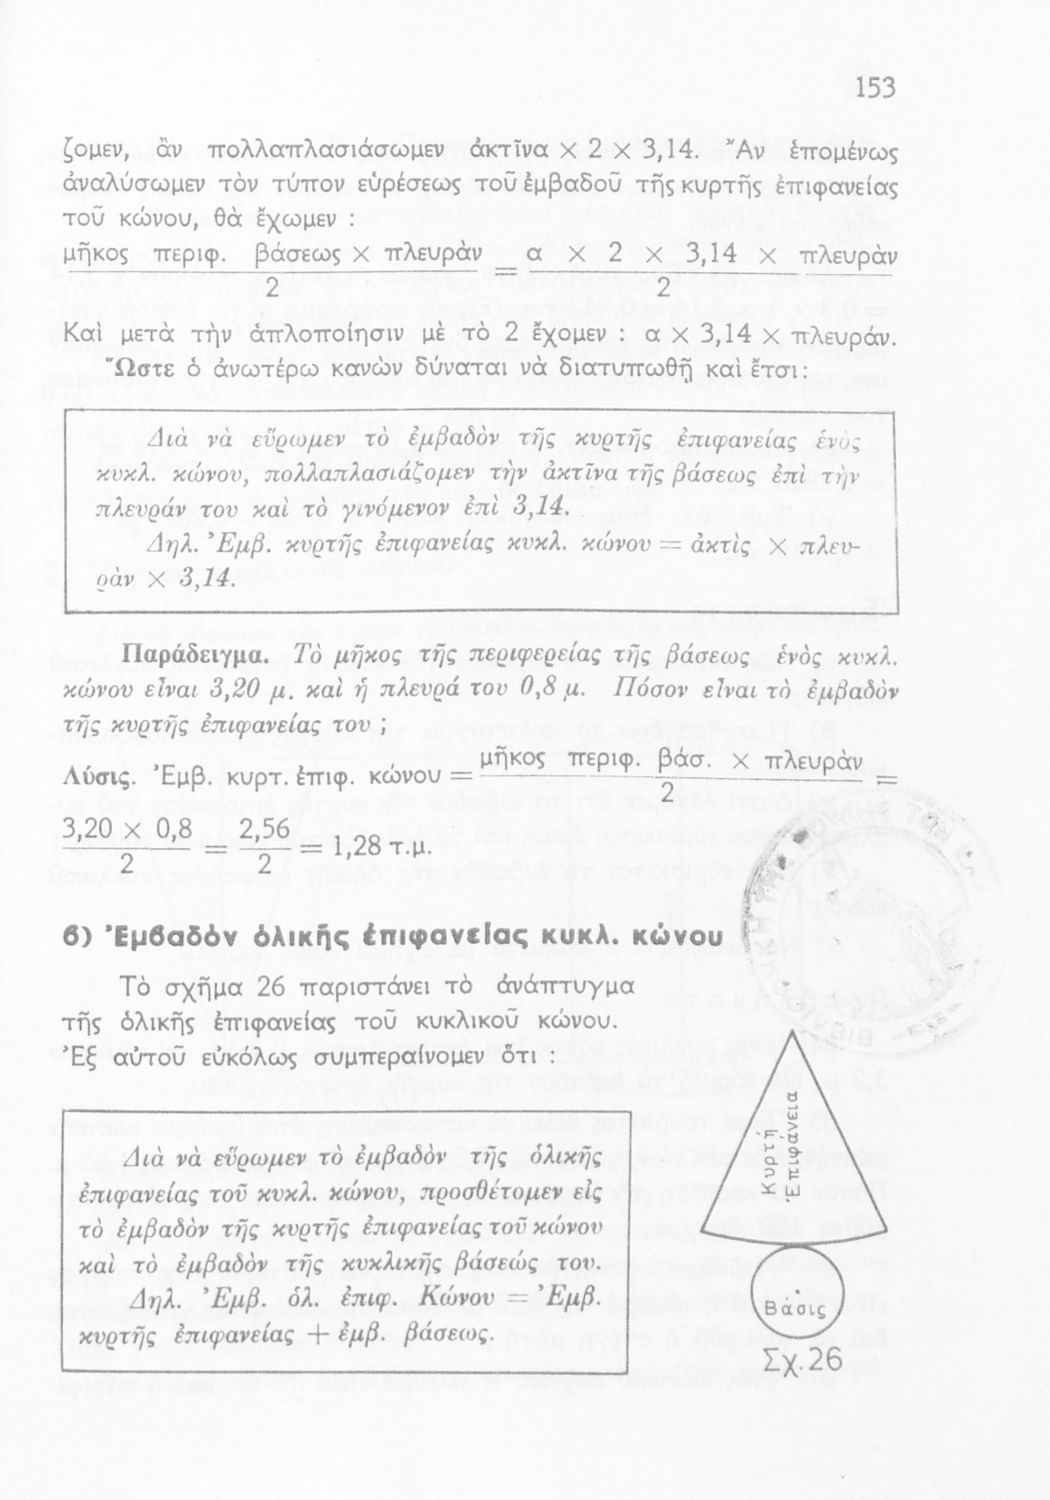 153
ζομεν, ἂν πολλαπλασιάσωμεν ἀκτῖνα × 2 × 3,14. Ἂν ἑπομένως
ἀναλύσωμεν τὸν τύπον εὑρέσεως τοῦ ἐμβαδοῦ τῆς κυρτῆς ἐπιφανείας
τοῦ κώνου, θὰ ἔχωμεν :
μῆκος περιφ. βάσεως × πλευρὰν = α × 2 × 3,14 × πλευρὰν
2 2
Καὶ μετὰ τὴν ἁπλοποίησιν μὲ τὸ 2 ἔχομεν : α × 3,14 × πλευράν.
Ὥστε ὁ ἀνωτέρω κανὼν δύναται νὰ διατυπωθῇ καὶ ἔτσι:
Διὰ νὰ εὕρωμεν τὸ ἐμβαδὸν τῆς κυρτῆς ἐπιφανείας ἑνὸς
κυκλ. κώνου, πολλαπλασιάζομεν τὴν ἀκτῖνα τῆς βάσεως ἐπὶ τὴν
πλευράν του καὶ τὸ γινόμενον ἐπὶ 3,14.
Δηλ. Ἐμβ. κυρτῆς ἐπιφανείας κυκλ. κώνου = ἀκτὶς × πλευ-
ρὰν × 3,14.
Παράδειγμα. Τὸ μῆκος τῆς περιφερείας τῆς βάσεως ἑνὸς κυκλ.
κώνου εἶναι 3,20 μ. καὶ ἡ πλευρά του 0,8 μ. Πόσον εἶναι τὸ ἐμβαδὸν
τῆς κυρτῆς ἐπιφανείας του ;
Λύσις. Ἐμβ. κυρτ. ἐπιφ. κώνου = μῆκος περιφ. βάσ. × πλευρὰν =
2
3,20 × 0,8 = 2,56 = 1,28 τ.μ.
2 2
6) Ἐμβαδὸν ὁλικῆς ἐπιφανείας κυκλ. κώνου
Τὸ σχῆμα 26 παριστάνει τὸ ἀνάπτυγμα
τῆς ὁλικῆς ἐπιφανείας τοῦ κυκλικοῦ κώνου.
Ἐξ αὐτοῦ εὐκόλως συμπεραίνομεν ὅτι :
Διὰ νὰ εὕρωμεν τὸ ἐμβαδὸν τῆς ὁλικῆς
ἐπιφανείας τοῦ κυκλ. κώνου, προσθέτομεν εἰς
τὸ ἐμβαδὸν τῆς κυρτῆς ἐπιφανείας τοῦ κώνου
καὶ τὸ ἐμβαδὸν τῆς κυκλικῆς βάσεώς του.
Δηλ. Ἐμβ. ὁλ. ἐπιφ. Κώνου = Ἐμβ.
κυρτῆς ἐπιφανείας + ἐμβ. βάσεως.
Κυρτή
Ἐπιφάνεια
Βάσις
Σχ.26